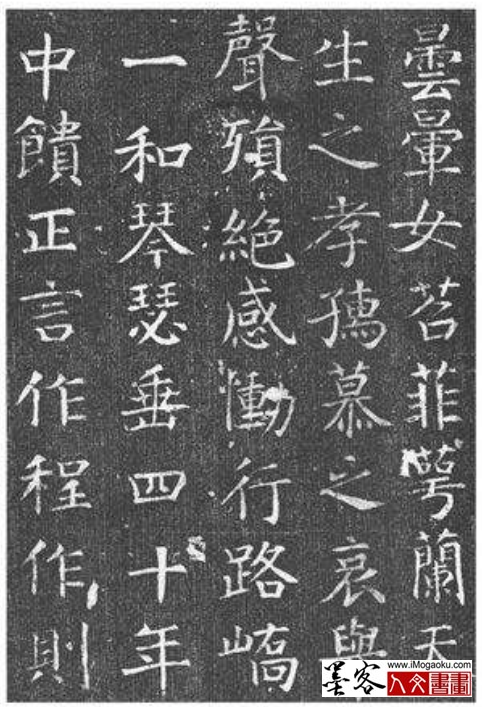 曇暈女苕菲萼蘭天
生之孝孺慕之哀與
聲殞絶感慟行路嶠
一和琴瑟垂四十年
中饋正言作程作則
墨客
www.iMogaoku.com
人文書畫